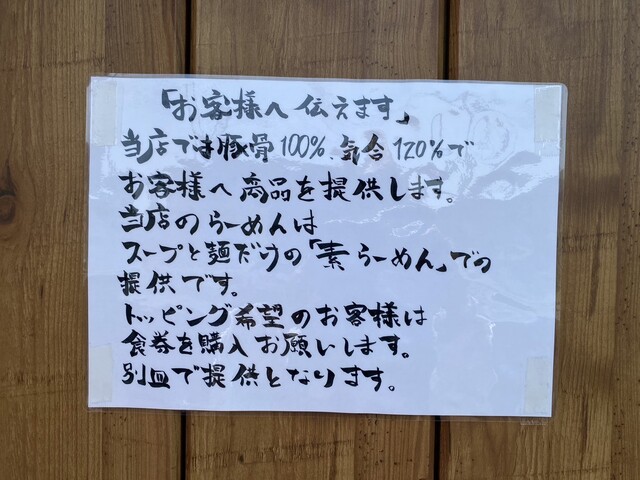 「お客様へ伝えます」
当店では豚骨100%、気合120%で
お客様へ商品を提供します。
当店のらーめんは
スープと麺だけの「素らーめん」での
提供です。
トッピング希望のお客様は
食券を購入お願いします。
別皿で提供となります。